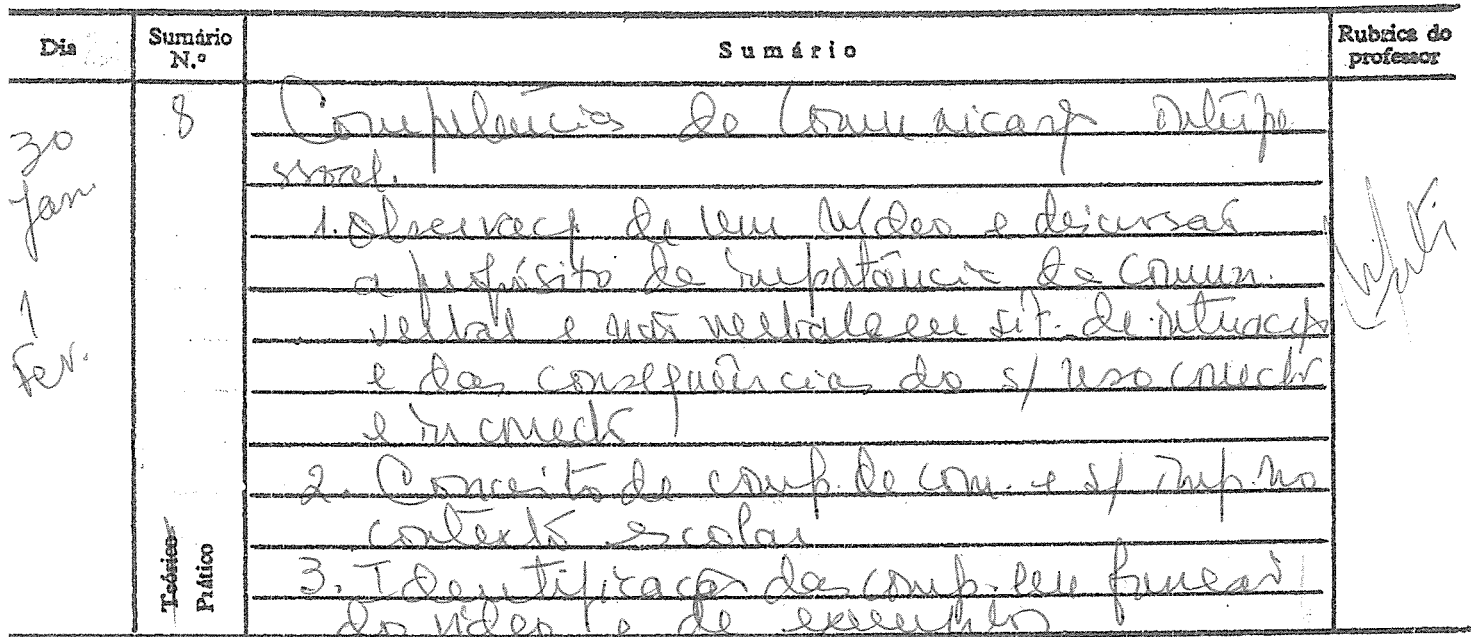 Dia
Sumário N.º
Sumário
Rubrica do professor
30 Jan
1 Fev.
8
Competências de Comunicação interpe
ssoal.
1. Observaç de um vídeo e discussão
a propósito da importância da comun.
verbal e não verbal em sit. de interacção
e das consequências do s/ uso correcto
e incorrecto
2. Conceito de comp. de com. e s/ imp. no
contexto escolar
3. Identificação das comp. em função
do vídeo e de exemplos
Teórico
Prático